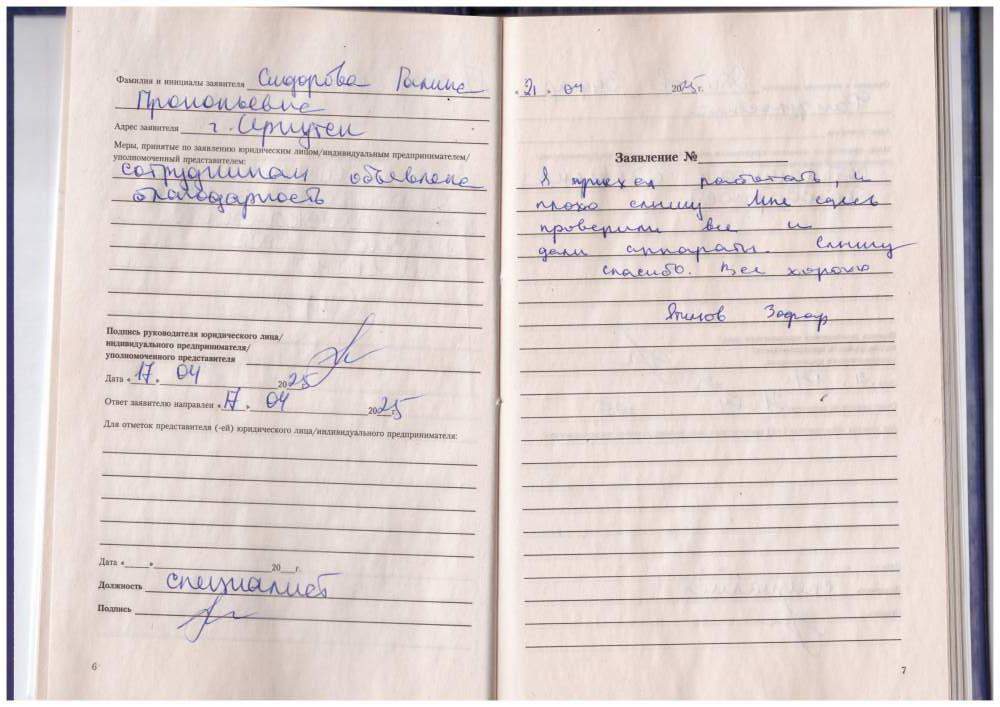 Фамилия и инициалы заявителя Сидорова Галина
Прокопьевна
Адрес заявителя г. Иркутск
Меры, принятые по заявлению юридическим лицом/индивидуальным предпринимателем/
уполномоченный представителем:
сотрудникам объявлена
благодарность
Подпись руководителя юридического лица/
индивидуального предпринимателя/
уполномоченного представителя
Дата «17» 04 2025
Ответ заявителю направлен «17» 04 2025г.
Для отметок представителя (-ей) юридического лица/индивидуального предпринимателя:
Дата «____»____________20___г.
Должность специалист
Подпись
6
«21» 04 2025г.
Заявление №
Я приехал работать, и
плохо слышу Мне здесь
проверили все и
дали аппараты. Слышу
спасибо. Все хорошо
Зафар
7